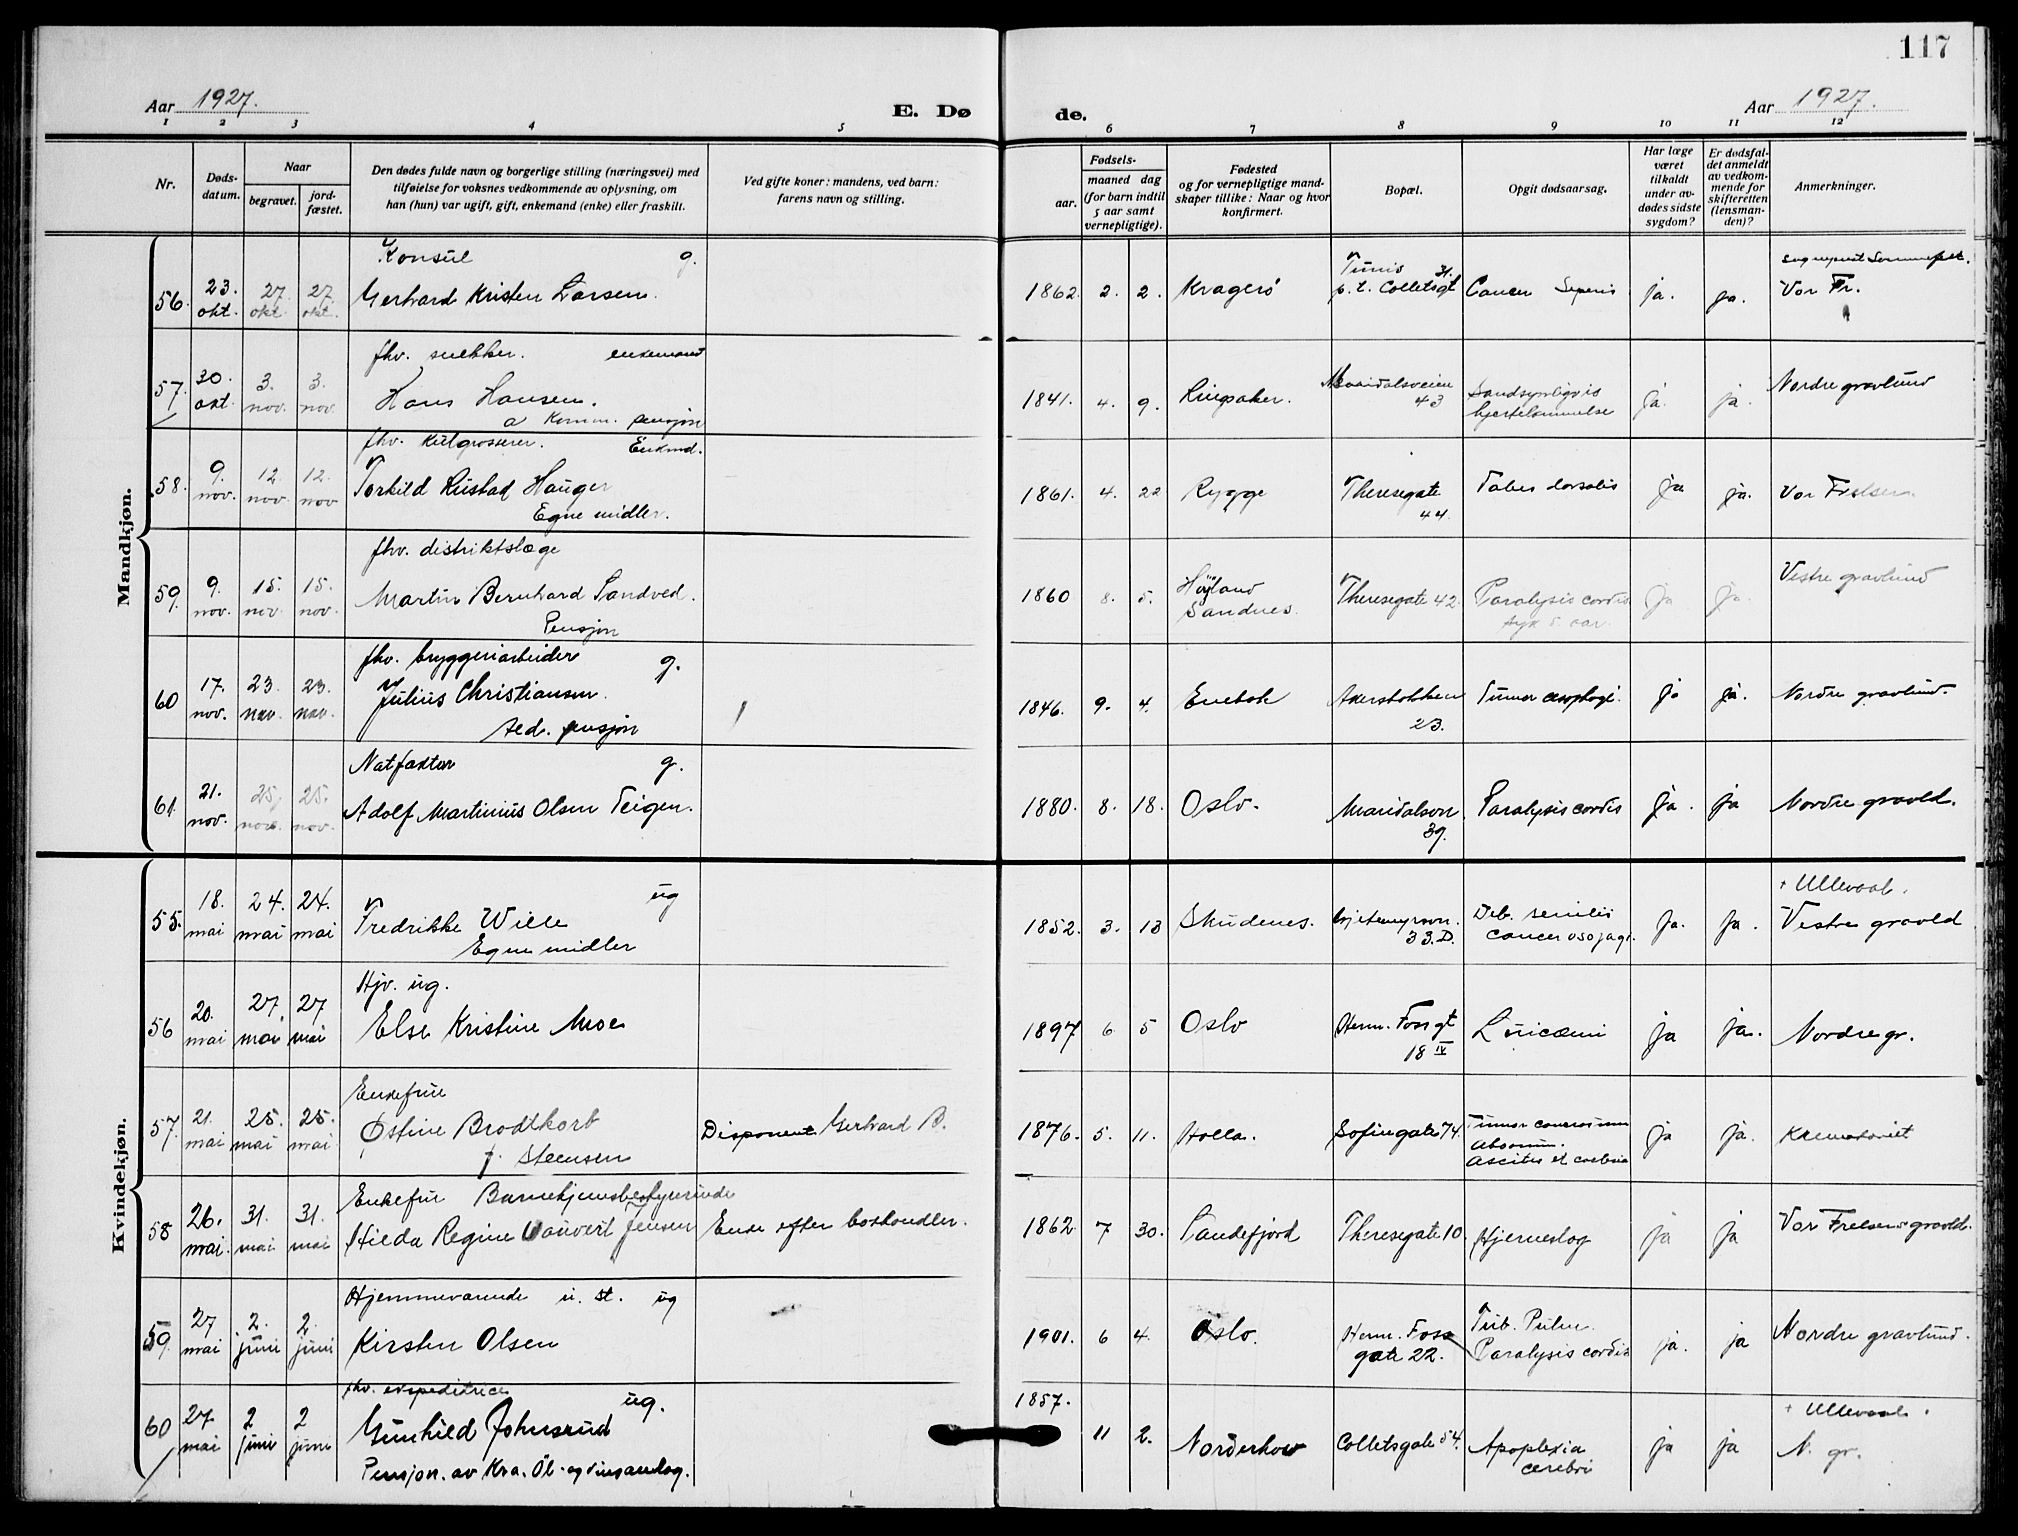 117
Aar 1927.
E. Dø
de.
Aar 1927.
1 2 3 4 5 6 7 8 9 10 11 12
Nr.
Døds-
datum.
Naar
begravet.
jord-
fæstet.
Den dødes fulde navn og borgerlige stilling (næringsvei) med
tilføielse for voksnes vedkommende av oplysning, om
han (hun) var ugift, gift, enkemand (enke) eller fraskilt.
Ved gifte koner: mandens, ved barn:
farens navn og stilling.
Fødsels-
aar.
maaned dag
(for barn indtil
5 aar samt
vernepligtige).
Fødested
og for vernepligtige mand-
skaper tillike: Naar og hvor
konfirmert.
Bopæl.
Opgit dødsaarsag.
Har læge
været
tilkaldt
under av-
dødes sidste
sygdom?
Er dødsfal-
det anmeldt
av vedkom-
mende for
skifteretten
(lensman-
den)?
Anmerkninger.
Mandkjøn.
56. 23. okt. 27. okt. 27. okt.
Konsul g.
Gerhard Kristen Larsen.
1862. 2. 2. Kragerø
Tunis
p. t. Colletsgt 31.
Cancer
ja. ja.
Vor Fr.
57. 30. okt. 3. nov. 3. nov.
fhv. snekker. enkemand
Hans Hansen.
a Komm. pensjon
1841. 4. 9. Ringsaker.
Maridalsveien
43
Sandsynligvis
hjertelammelse
ja. ja.
Nordre gravlund
58. 9. nov. 12. nov. 12. nov
fhv. kulgrosserer. Enkmd.
Torkild Rustad Hauger
Egne midler.
1861. 4. 22 Rygge
Theresegate
44.
Tabes dorsalis
ja ja.
Vor Frelsers.
59. 9. nov. 15. nov. 15. nov.
fhv. distriktslæge
Martin Bernhard Sandved.
Pensjon
1860 8. 5.
Høyland
Sandnes.
Theresegate 42.
Paralysis cordis
syk 5 aar.
ja ja.
Vestre gravlund
60 17. nov. 23. nov. 23. nov.
fhv. bryggeriarbeider g.
Julius Christiansen.
Aed. pensjon
1846. 9. 4. Enebak
Akersbakken
23.
Tumor oesophagi.
ja ja.
Nordre gravlund.
61. 21. nov. 25. nov. 25. nov.
Natfaktor g.
Adolf Martinius Olsen Teigen.
1880. 8. 18. Oslo.
Maridalsvn
39.
Paralysis cordis
ja. ja
Nordre gravld.
Kvindekjøn.
55. 18. mai 24. mai 24. mai
ug
Fredrikke Wille
Egne midler
1852. 3. 13 Skudenes.
Gjetemyrsvn.
33.D.
Deb. senilis
cancer
ja. ja.
+ Ullevaal.
Vestre gravld
56 20. mai 27. mai 27 mai
Hjv. ug.
Else Kristine Moe
1897 6 5 Oslo
Herm. Foss gt
18 IV
ja ja.
Nordre gr.
57. 21. mai 25. mai 25. mai
Enkefrue
Østine Brodtkorb
f. Steensen
Disponent Gerhard B.
1876. 5. 11. Holla.
Sofiengate 74.
Tumor
abdomin.
Ascites et
ja ja.
Krematoriet
58 26. mai. 31. mai 31. mai
Enkefru Barnehjemsbestyrerinde
Hilda Regine Wauvert Jensen
Enke efter boghandler.
1862 7 30. Sandefjord
Theresegate 10.
Hjerneslag
ja ja
Vor Frelsers gravld.
59. 27 mai 2. juni 2. juni
Hjemmeværende u. st. ug
Kirsten Olsen
1901. 6 4. Oslo.
Herm. Foss
gate 22.
Tub. Pulm.
Paralysis cordis
ja. ja
Nordre gravlund.
60 27 mai 2 juni 2 juni
fhv. expeditrice ug.
Gunhild Johnsrud
Pensjon. av Kra. Øl- og
1857.
11 2. Norderhov
Colletsgate 54.
Apoplexia
cerebri
ja ja
+ Ullevaal.
N. gr.